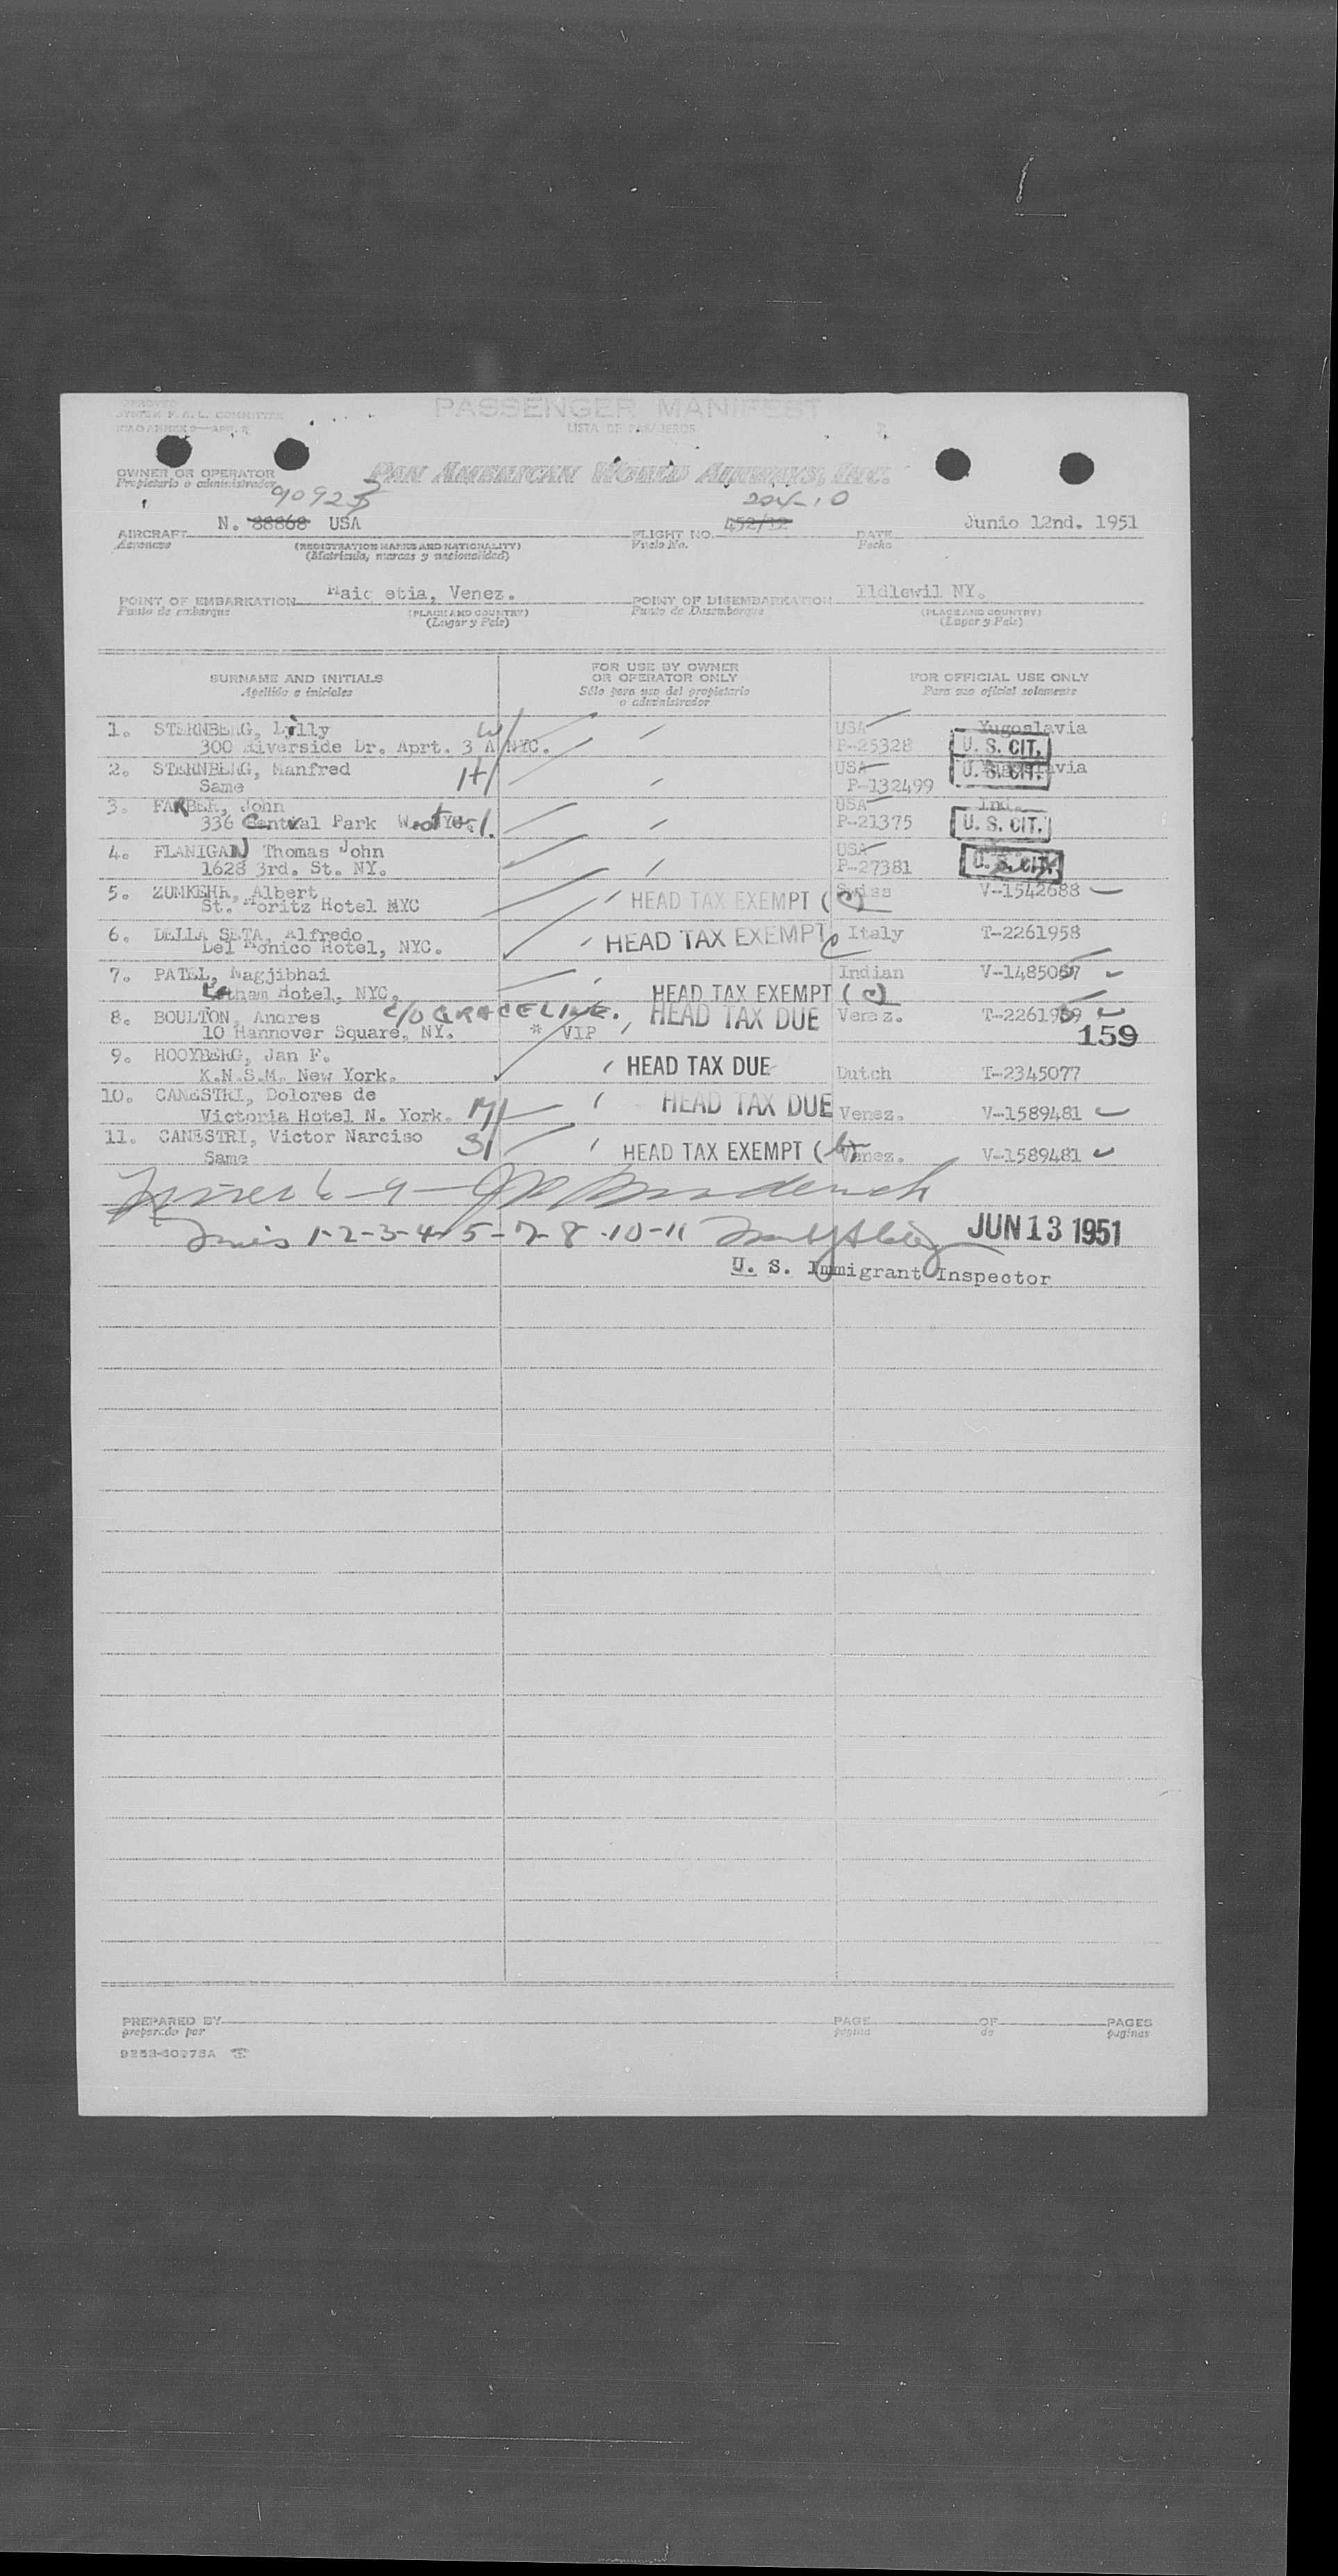 APPROVED
SYSTEM F.A.L. COMMITTEE
ICAO ANNEX 9—APP. 2
PASSENGER MANIFEST
LISTA DE PASAJEROS
OWNER OR OPERATOR
Propietario o administrador
PAN AMERICAN WORLD AIRWAYS, INC.
90923
204-10
AIRCRAFT N. 88868 USA
FLIGHT NO. 452/12
DATE Junio 12nd. 1951
Aeronave
(REGISTRATION MARKS AND NATIONALITY)
Vuelo No.
Fecha
(Matrícula, marcas y nacionalidad)
POINT OF EMBARKATION Maiq etia, Venez.
POINT OF DISEMBARKATION Ildlewil NY.
Punto de embarque
(PLACE AND COUNTRY)
Punto de Desembarque
(PLACE AND COUNTRY)
(Lugar y País)
(Lugar y País)
SURNAME AND INITIALS
Apellido e iniciales
FOR USE BY OWNER
OR OPERATOR ONLY
Sólo para uso del propietario
o administrador
FOR OFFICIAL USE ONLY
Para uso oficial solamente
1. STERNBERG, Lilly W/ USA Yugoslavia
300 Riverside Dr. Aprt. 3 A NYC. P-25328 U. S. CIT.
2. STERNBERG, Manfred H/ USA Yugoslavia U. S. CIT.
Same P-132499
3. FARBER, John USA Ind.
336 Central Park West P-21375 U. S. CIT.
4. FLANIGAN Thomas John USA
1628 3rd. St. NY. P-27381 U. S. CIT.
5. ZUMKEHR, Albert Swiss V-1542688
St. Moritz Hotel NYC HEAD TAX EXEMPT (C)
6. DELLA SETA, Alfredo HEAD TAX EXEMPT C Italy T-2261958
Del Monico Hotel, NYC.
7. PATEL, Nagjibhai Indian V-1485057
Latham Hotel, NYC. HEAD TAX EXEMPT (C)
8. BOULTON, Andres C/O GRACE LINE. HEAD TAX DUE Venez. T-2261959
10 Hannover Square, NY. * VIP 159
9. HOOYBERG, Jan F. HEAD TAX DUE Dutch T-2345077
K.N.S.M. New York.
10. CANESTRI, Dolores de HEAD TAX DUE
Victoria Hotel N. York. M/ Venez. V-1589481
11. CANESTRI, Victor Narciso S/
Same HEAD TAX EXEMPT (b) Venez. V-1589481
6-9
1-2-3-4-5-7-8-10-11 JUN 13 1951
U. S. Immigrant Inspector
PREPARED BY
PAGE OF PAGES
preparado por
página de páginas